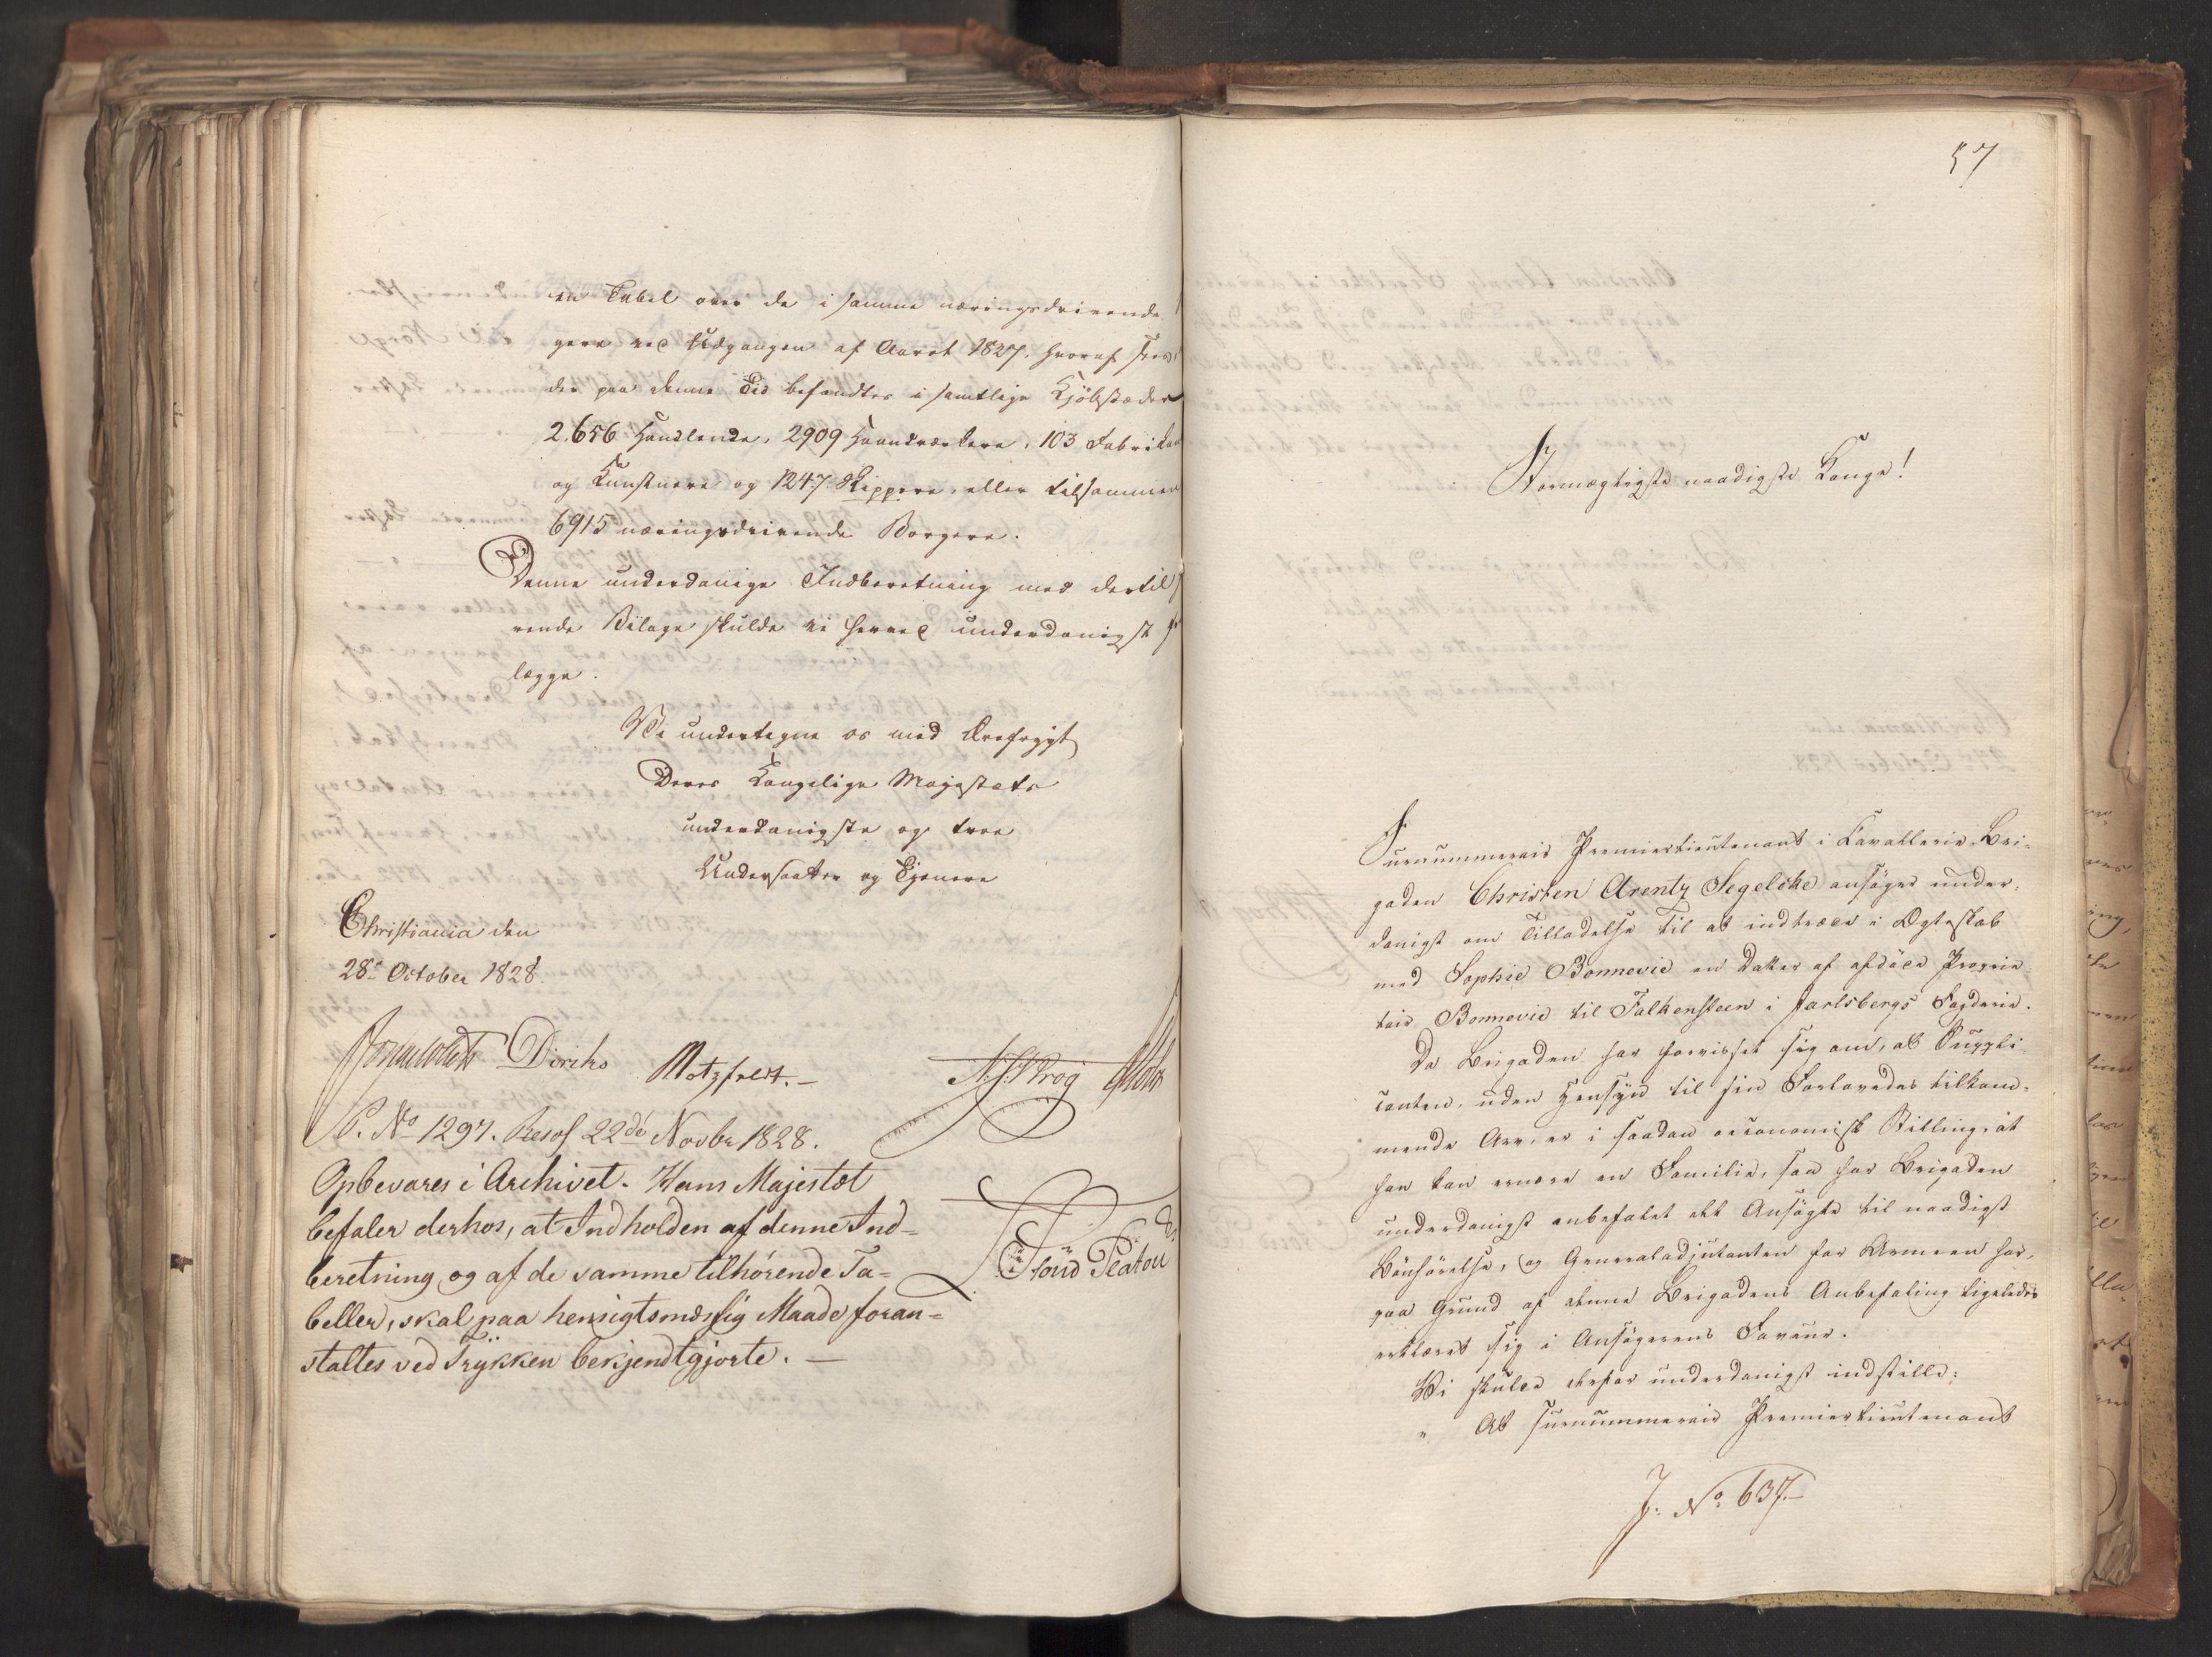 en Tabel over de i samme næringsdrivende
gere ved Udgangen af Aaret 1827, hvoraf sees
der paa denne Tid befandtes i samtlige Kjöbstæder
2,656 Handlende, 2909 Haandværkere, 103 Fabrikan
og Kunstnere og 1247 Skippere, eller tilsammen
6915 næringsdrivende Borgere.
Denne underdanige Indberetning med dertil
rende Bilage skulde vi herved underdanigst
lægge.
Vi undertegne os med Ærefrygt
Deres Kongelige Majestæts
underdanigste og troe
Undersaatter og Tjenere
Christiania den
28de October 1828.
Diriks Motzfeldt. Krog
P. No 1297. Resol 22de Novbr 1828.
Opbevares i Archivet. Hans Majestæt
befaler derhos, at Indholden af denne Ind=
beretning og af de samme tilhørende Ta=
beller, skal paa hensigtsmæssig Maade foran=
staltes ved Trykken bekjendtgjorte. —
Stoud Platou
57
Stormægtigste naadigste Konge!
Surnummerair Premierlieutenant i Cavallerie-Bri-
gaden Christen Arentz Segelcke ansöger under-
danigst om Tilladelse til at indtræde i Ægteskab
med Sophie Bonnevie en Datter af afdöde Proprie-
tair Bonnevie til Falkensteen i Jarlsbergs Fogderie.
Da Brigaden har forvisset sig om, at Suppli-
canten, uden Hensyn til sin Forlovedes tilkom-
mende Arv, er i saadan oeconomisk Stilling, at
han kan ernære en Familie, saa har Brigaden
underdanigst anbefalet det Ansögte til naadigst
Bönhörelse, og Generaladjutanten for Armeen har,
paa Grund af denne Brigadens Anbefaling ligeledes
erklæret sig i Ansögerens Faveur.
Vi skulde derfor underdanigst indstille:
" At surnummerair Premierlieutenant
J: No 637.